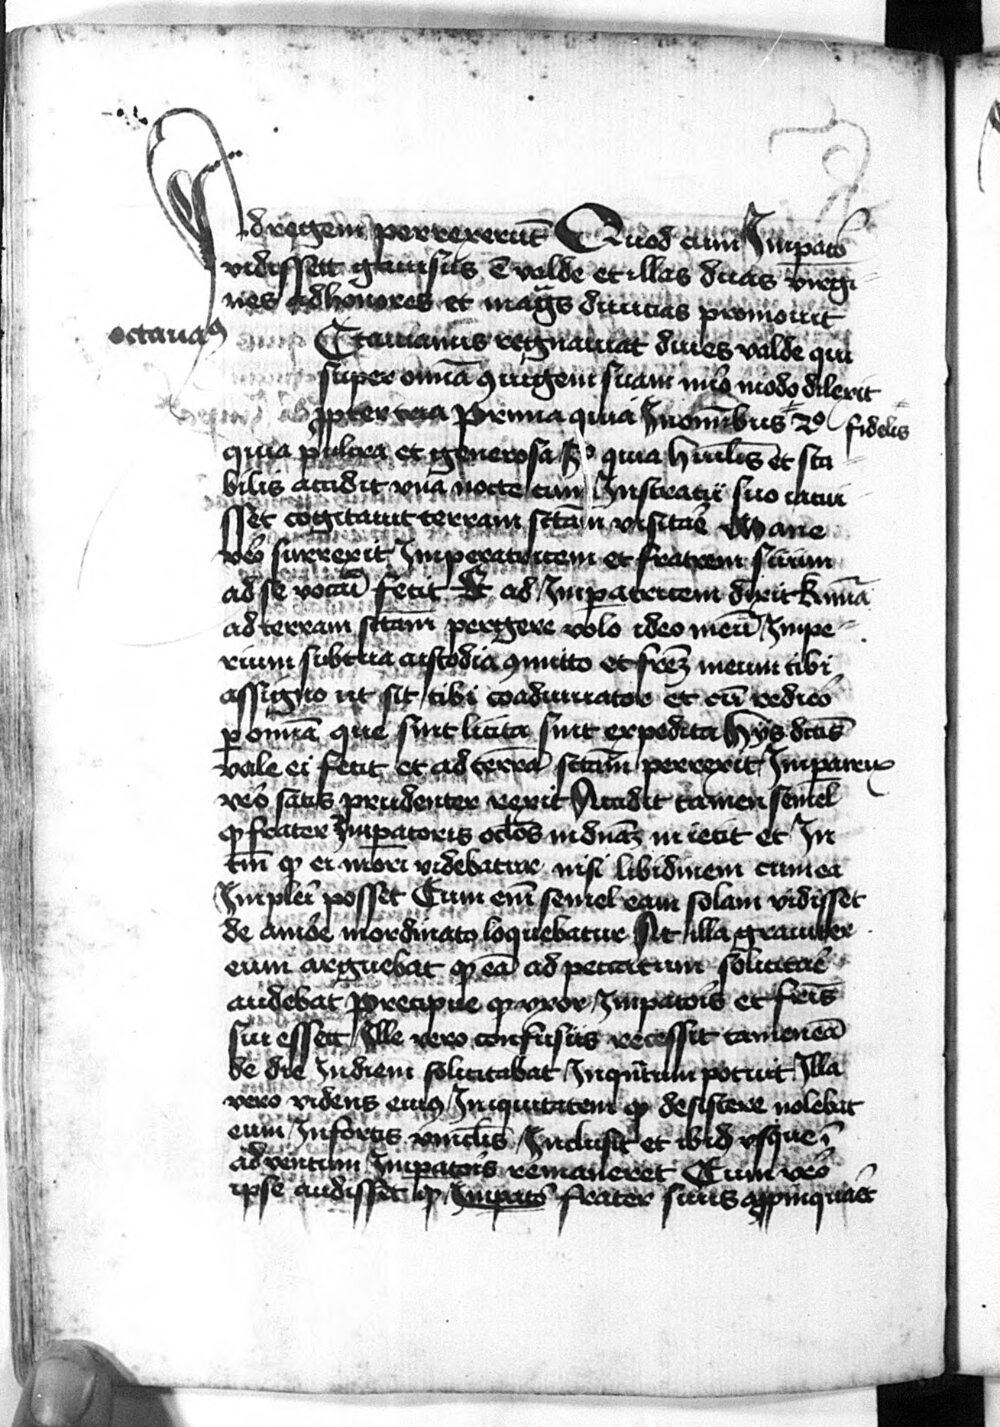 Ad regem perrexerūt Quod cum Impatō
vidissett gauisus ē valde et illas duas virgi
nes ad honores et mag͞s diuicias promouit
octauian9
Octauianus regnauiat diues valde qui
super omīa 9iugem suam mīo modo dilexit
ꝓpter tria Prima quia In om̄ibus fidelis 2o
quia pulcra et generosa 3o quia humil̄is et sta
bilis accidit vna nocte cum In stratu suo iacui
sset cogitauit terram sctām visitar̄e Mane
vēo surrexit Imperatricem et fratrem suum
ad se vocāi fecit Et ad Impatricem dixit karīa
ad terram sctam pergere volo ideo meū Impe
rium sub tua custodia 9mitto et frēm meum tibi
assigno ut sit tibi coadiuuator et cū rediēo
per omīa que sunt licita sint expedita Hys dictis
vale ei fecit et ad terrā sctām perrexit Impatrix
vēo satis prudenter rexit Accidit tamen semel
ꝙ frater Impatoris oc̄los in dnām iniecit et In
tm̄ ꝙ ei mori videbatur nisi libidinem cum ea
Impleri posset Cum em̄ semel eam solam vidisset
de amōe inordinato loquebatur At illa grauiter
eum arguebat ꝙ eā ad peccatum solicitāe
audebat Precipue ꝙ vxor Impatōis et frīs
sui essett Ille vero confusus recessit tamen eā
de die In diem solicitabat In qn̄tum potuit Illa
vero videns eius Iniquitatem ꝙ desistere nolebat
eum In fortis vincl̄is Inclusit et ibid vsque ī
aduentum Impatōis remaneret Cum vēo
ipse audisset ꝙ Impatō frater suus apꝓinquāet